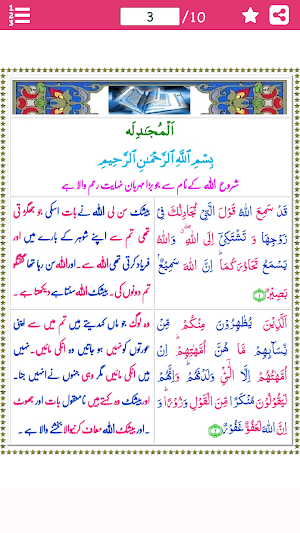 1
2
3
3
/10
المُجَادِلَه
بِسْمِ اللَّهِ الرَّحْمٰنِ الرَّحِيمِ
شروع اللہ کے نام سے جو بڑا مہربان نہایت رحم والا ہے
قَدْ سَمِعَ اللَّهُ قَوْلَ الَّتِي تُجَادِلُكَ فِي
زَوْجِهَا وَتَشْتَكِي إِلَى اللَّهِ وَاللَّهُ
يَسْمَعُ تَحَاوُرَكُمَا إِنَّ اللَّهَ سَمِيعٌ
بَصِيرٌ ۱
بیشک سن لی اللہ نے بات اسکی جو جھگڑتی
تھی تم سے اپنے شوہر کے بارے میں اور
فریاد کرتی تھی اللہ سے۔اور اللہ سن رہا تھا گفتگو
تم دونوں کی۔ بیشک اللہ سنتا ہے دیکھتا ہے۔
الَّذِينَ يُظَاهِرُونَ مِنْكُمْ مِنْ
نِسَائِهِمْ مَا هُنَّ أُمَّهَاتِهِمْ إِنْ
أُمَّهَاتُهُمْ إِلَّا اللَّائِي وَلَدْنَهُمْ وَإِنَّهُمْ
لَيَقُولُونَ مُنْكَرًا مِنَ الْقَوْلِ وَزُورًا وَ
إِنَّ اللَّهَ لَعَفُوٌّ غَفُورٌ ۲
وہ لوگ جو ماں کہدیتے ہیں تم میں سے اپنی
عورتوں کو نہیں ہو جاتیں وہ انکی مائیں۔ نہیں
ہیں انکی مائیں مگر وہی جنہوں نے انہیں جنا۔
اور بیشک وہ کہتے ہیں نامعقول بات اور جھوٹ
۔اور بیشک اللہ معاف کرنیوالا بخشنے والا ہے۔